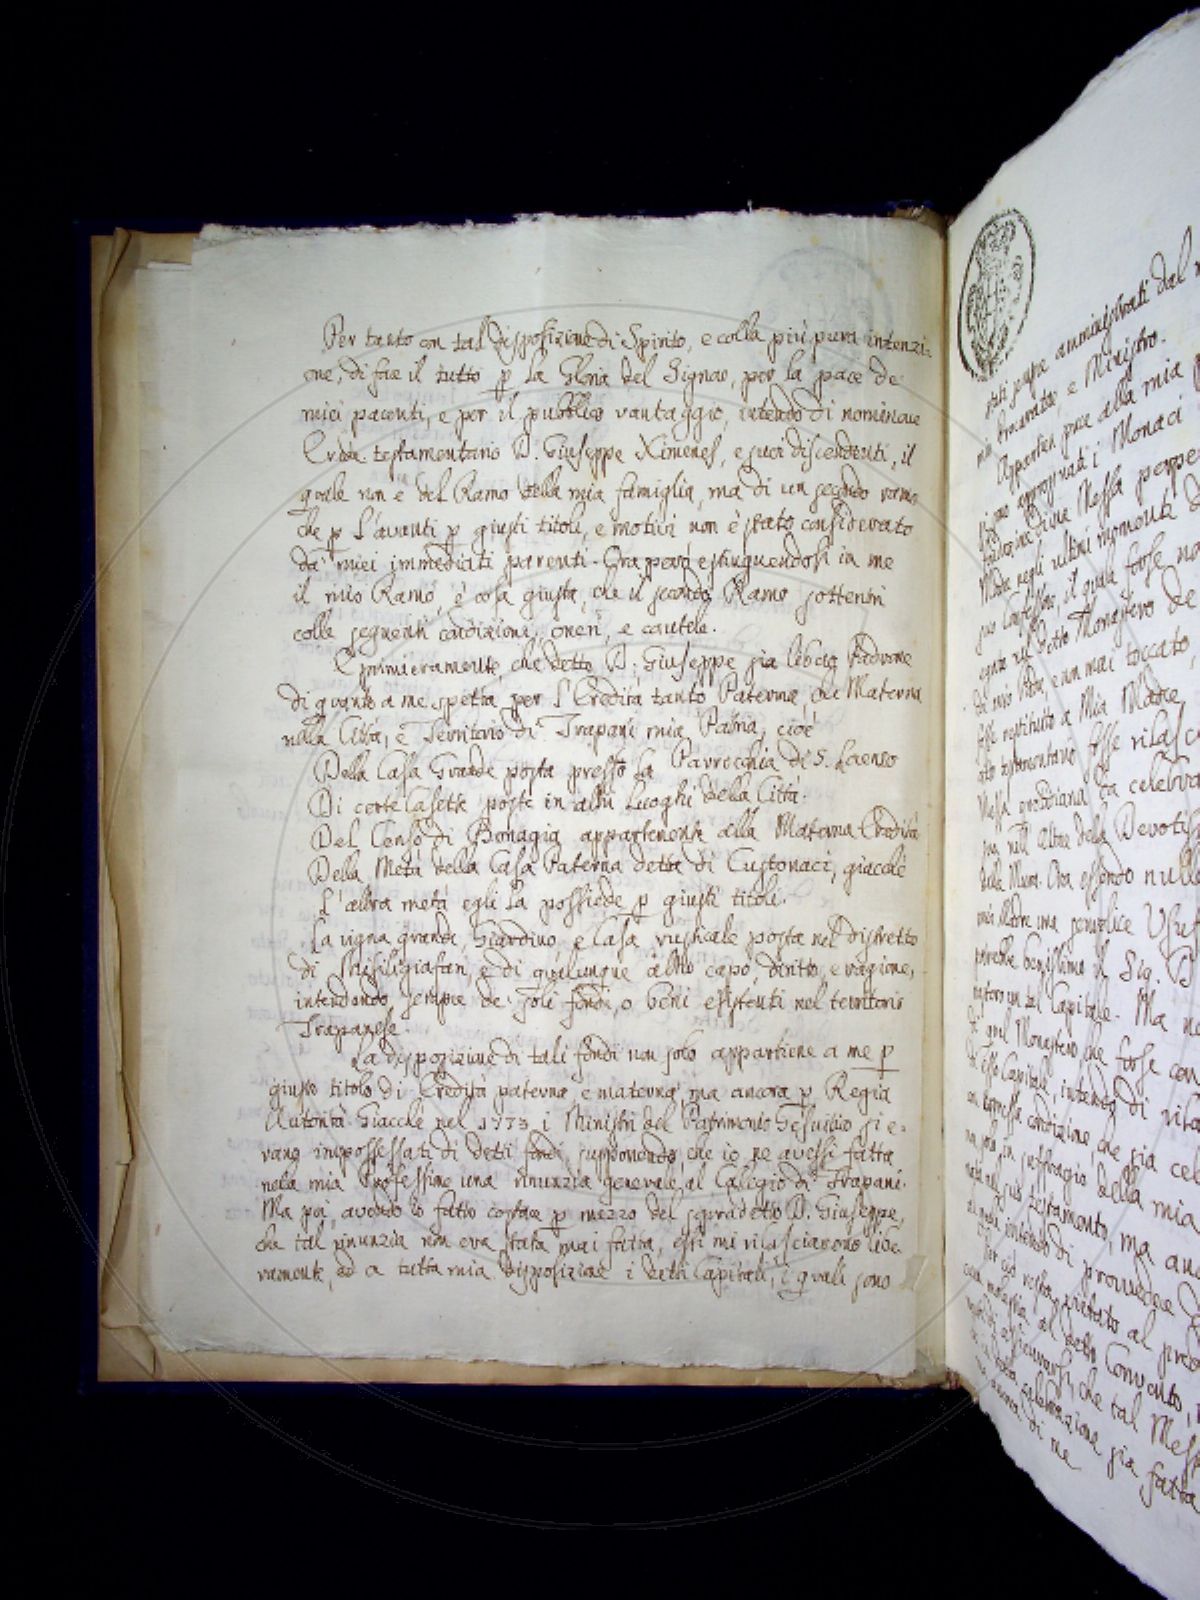 Per tanto con tal disposizione di Spirito, e colla più pura intenzi-
one, di far il tutto p la Gloria del Signor, per la pace de'
miei parenti, e per il pubblico vantaggio, intendo di nominare
Erede testamentario D. Giuseppe Ximenes, e suoi discendenti, il
quale non è del Ramo della mia famiglia, ma di un secondo ramo
che p l'avanti p giusti titoli, e motivi non è stato considerato
da miei immediati parenti. Ora però estinguendosi in me
il mio Ramo, è cosa giusta, che il secondo Ramo sottentri
colle seguenti condizioni, oneri, e cautele.
E primieramente, che detto D. Giuseppe sia libero Padrone
di quanto a me spetta per l'Eredità tanto Paterna, che Materna
nella Città, e Territorio di Trapani mia Patria, cioè
Della Casa Grande posta presso la Parrochia di S. Lorenso
Di certe Casette poste in altri Luoghi della Città.
Del Censo di Bonagia appartenente alla Materna Eredità
Della Metà della Casa Paterna detta di Custonaci, giacchè
L'altra metà egli la possiede p giusti titoli.
La vigna grande, Giardino, e Casa rusticale posta nel distretto
di Misiligiafari, e di qualunque altro capo, diritto, e ragione,
intendendo sempre de' soli fondi, o beni esistenti nel territorio
Trapanese.
La disposizione di tali fondi non solo appartiene a me p
giusto titolo di Eredità paterna, e materna, ma ancora p Regia
Autorità. Giacchè nel 1773 i Ministri del Patrimonio Gesuitico si e-
rano impossessati di detti fondi, supponendo, che io ne avessi fatta
nella mia Professione una rinunzia generale al Collegio di Trapani.
Ma poi, avendo io fatto costare p mezzo del sopradetto D. Giuseppe,
che tal rinunzia non era stata mai fatta, essi mi rilasciarono libe-
ramente, ed a tutta mia disposizione i detti Capitali, i quali sono
stati sempre amministrati dal
mio Procurator, e Ministro.
Appartien pure alla mia
appropriati i Monaci
di una Messa perpe
Madre negli ultimi momenti
suo Confessore, il quale forse no
nel detto Monastero de
di mio Padre, e non mai toccato,
fosse restituito a Mia Madre
testamentario fosse rilasc
Messa quotidiana da celebra
nell'Altare della Devotiss
Ora essendo nulla
mia Madre una semplice Usuf
potrebbe benissimo il Sig. D
un tal Capitale. Ma ne
di quel Monastero, che forse con
di esso Capitale, intendo di rila
con espressa condizione, che sia cel
non solo in suffragio della mia
suo testamento, ma anc
intendo di provvedere
Per ciò resta vietato al pred
molestia al detto Convento,
di assicurarsi, che tal Mess
celebrazione sia fatta
ancora di me